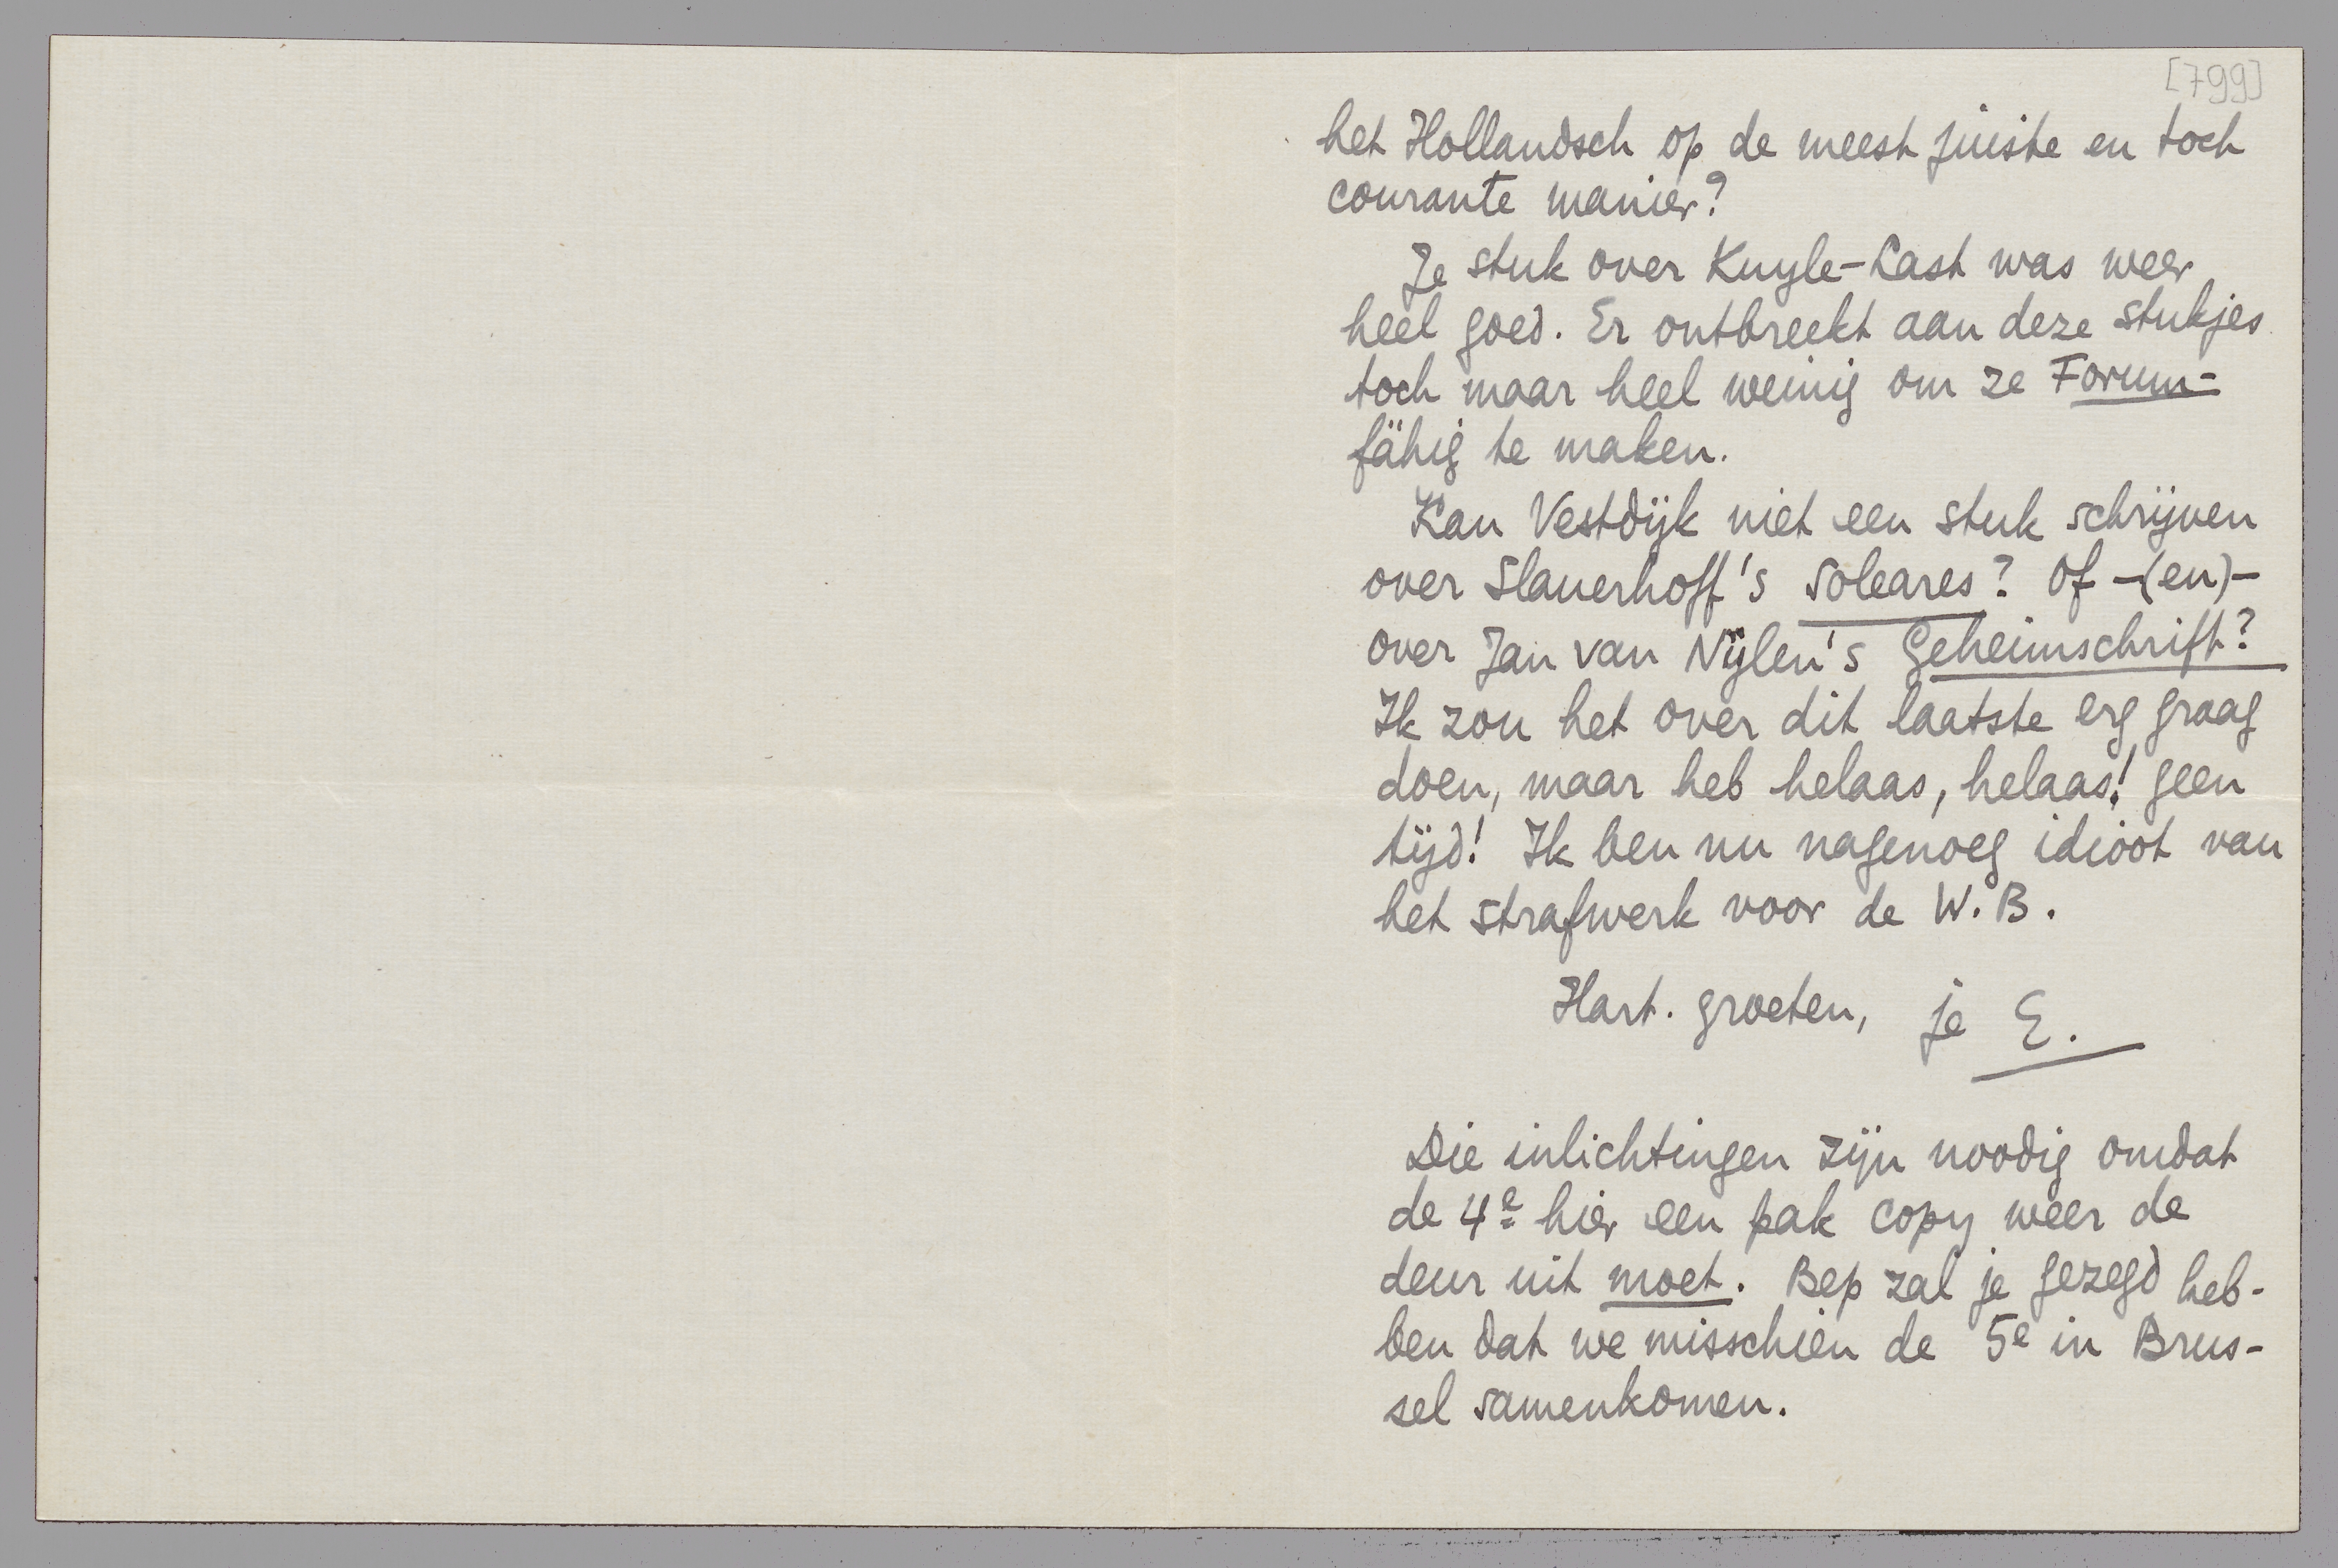 [799]
het Hollandsch op de meest juiste en toch
courante manier?
Je stuk over Kuyle-Last was weer
heel goed. Er ontbreekt aan deze stukjes
toch maar heel weinig om ze Forum-
fähig te maken.
Kan Vestdijk niet een stuk schrijven
over Slauerhoff's Soleares? Of -(en)-
over Jan van Nijlen's Geheimschrift?
Ik zou het over dit laatste erg graag
doen, maar heb helaas, helaas! geen
tijd! Ik ben nu nagenoeg idioot van
het strafwerk voor de W.B.
Hart. groeten, je E.
Die inlichtingen zijn noodig omdat
de 4e hier een pak copy weer de
deur uit moet. Bep zal je gezegd heb-
ben dat we misschien de 5e in Brus-
sel samenkomen.